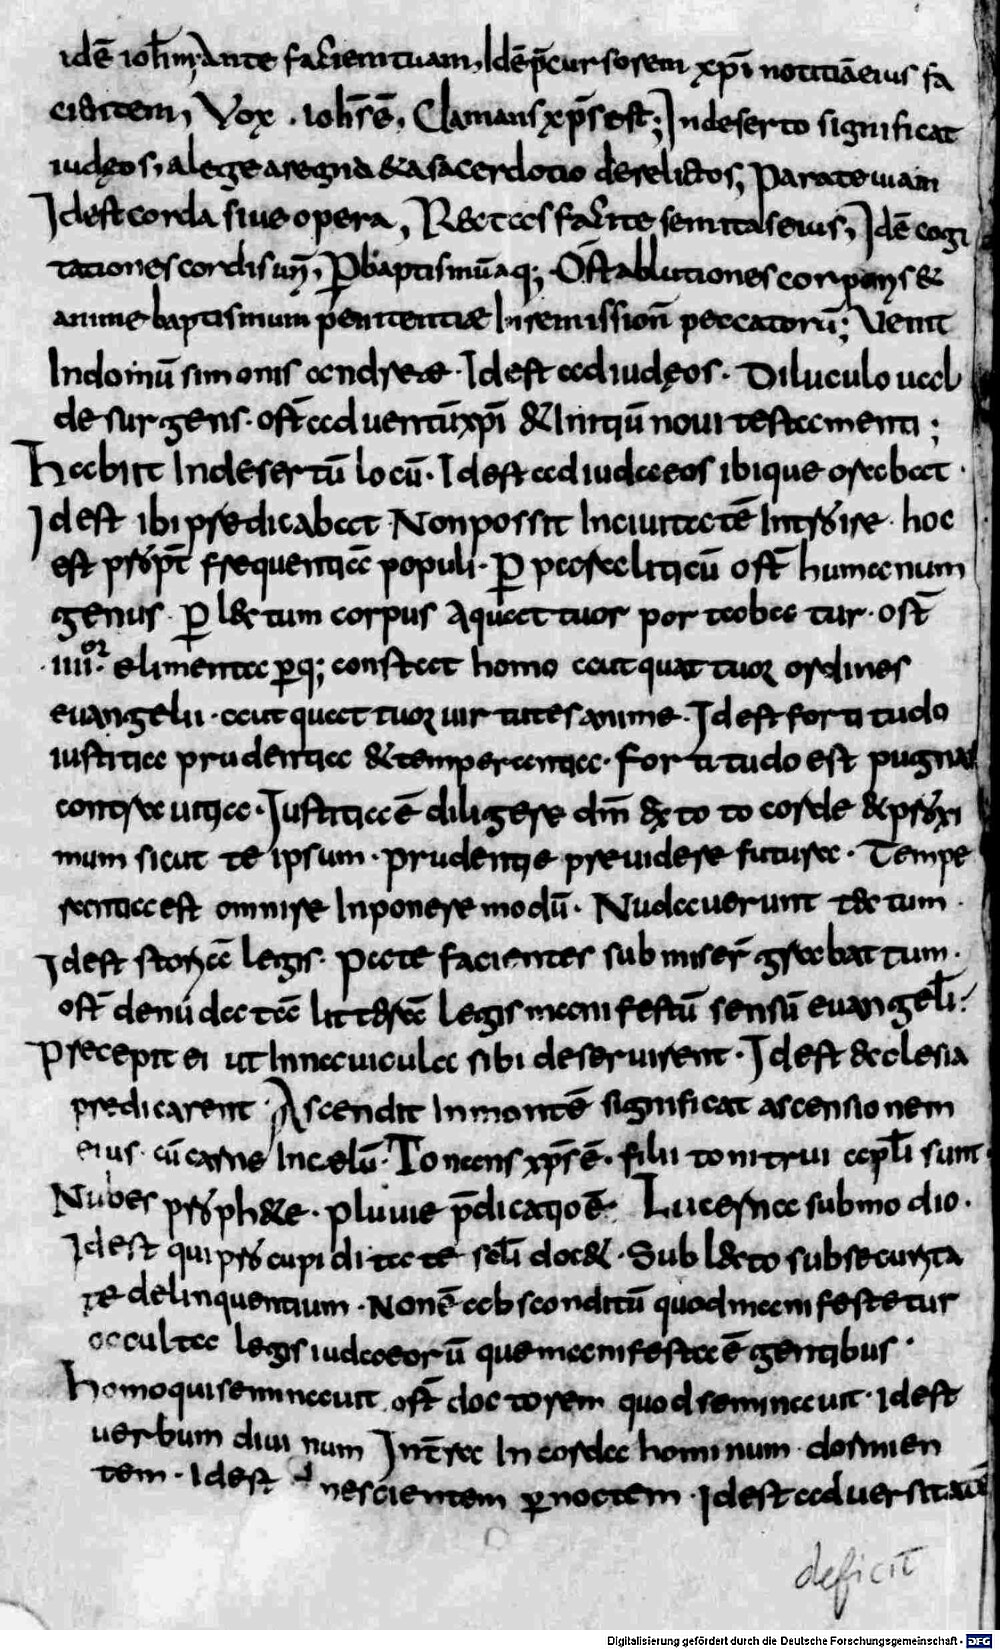 idē ioħm, Ante faciem tuam, Idē p̄cursorem xp̄i notitiā eius fa
cientem, Vox . ioħs ē, Clamans xp̄s est; In deserto significat
iudęos, a lege a regno & a sacerdotio derelictos, Parate uiam
Idest corda siue opera, Rectas facite semitas eius, Idē cogi
tationes cordis
anime baptismum penitentiæ In remissionē peccatorū; Venit
In domū simonis et andreæ . Idest ad iudęos . Diluculo ual
de surgens . ost̄ aduentū xp̄i & Initiū noui testamenti ;
habiit In desertū locū . Idest ad iudaeos ibique orabat .
Idest ibi predicabat . Non possit In ciuitatē Introire . hoc
est propt̄ frequentiā populi . P paraliticū ost̄ humanum
genus . P lectum corpus A quattuor portabatur . ost̄
. iiii.or elimenta p q; constat homo aut quattuor ordines
euangelii . aut quattuor uirtutes anime . Idest fortitudo
iustitia prudentia & temperantia . fortitudo est pugna
contra uitia . Iustitia ē diligere dm̄ ex toto corde & proxi
mum sicut te ipsum . prudentię preuidere futura . Tempe
rantia est omnire Inponere modū . Nudauerunt tectum .
Idest storiā legis . Pate facientes sub miser̄ grabattum .
ost̄ denudatā litterā legis manifestū sensū euangeł̄i .
Precepit ei ut In nauicula sibi deseruirent . Idest ecclesia
predicarent . Ascendit In montē significat ascensionem
eius . cū carne In celū . Tonans xp̄s ē . filii tonitrui apłi sunt
Nubes prophetæ . pluuie p̄dicatio ē . Lucerna sub modio .
Idest qui pro cupiditate scłi docet . Sub lecto sub securita
te delinquentium . Non ē absconditū quod manifestetur
occulta legis iudaeorū que manifesta ē gentibus .
homo qui seminauit ost̄ doctorem quod seminauit . idest
uerbum diuinum Intra In corda hominum . dormien
tem . Idest nescientem p noctem . Idest aduersitatē
deficit
Digitalisierung gefördert durch die Deutsche Forschungsgemeinschaft - DFG